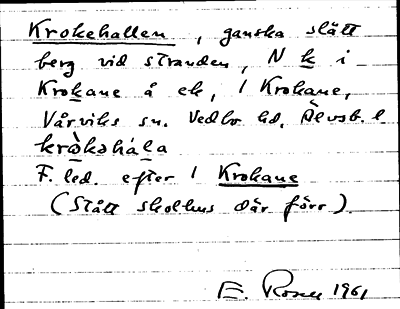 Krokehallen, ganska slätt
berg vid stranden, N k i
Krokane å ek, 1 Krokane,
Vårviks sn. Vedbo hd. Älvsb. l.
krò̀kəhála
F. led. efter 1 Krokane
(Stått skolhus där förr).
E. Rosen 1961